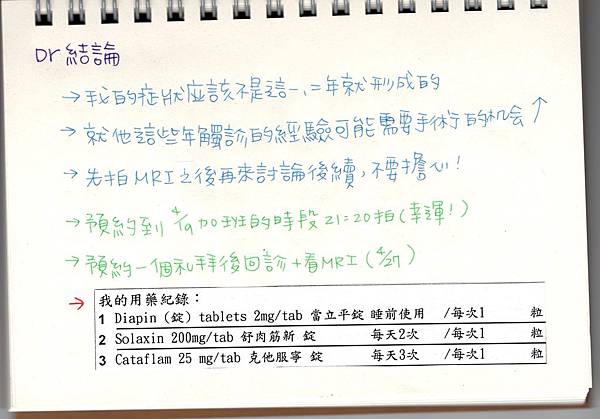 Dr結論
→我的症狀應該不是這一、二年就形成的
→就他這些年觸診的經驗可能需要手術的机会↑
→先拍MRI之後再來討論後續,不要擔心!
→預約到4/9加班的時段21:20拍(幸運!)
→預約一個礼拜後回診+看MRI(4/27)
→ 我的用藥紀錄:
1 Diapin (錠) tablets 2mg/tab 當立平錠 睡前使用 /每次1 粒
2 Solaxin 200mg/tab 舒肉筋新 錠 每天2次 /每次1 粒
3 Cataflam 25 mg/tab 克他服寧 錠 每天3次 /每次1 粒